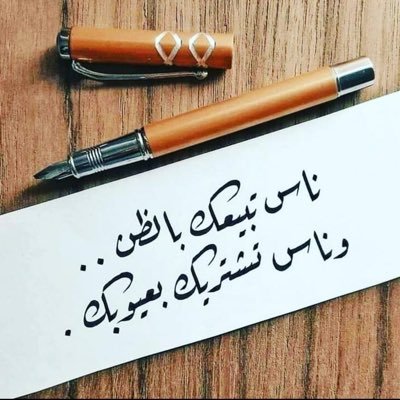 ناس تبيعك بالظن ..
وناس تشتريك بعيوبك .